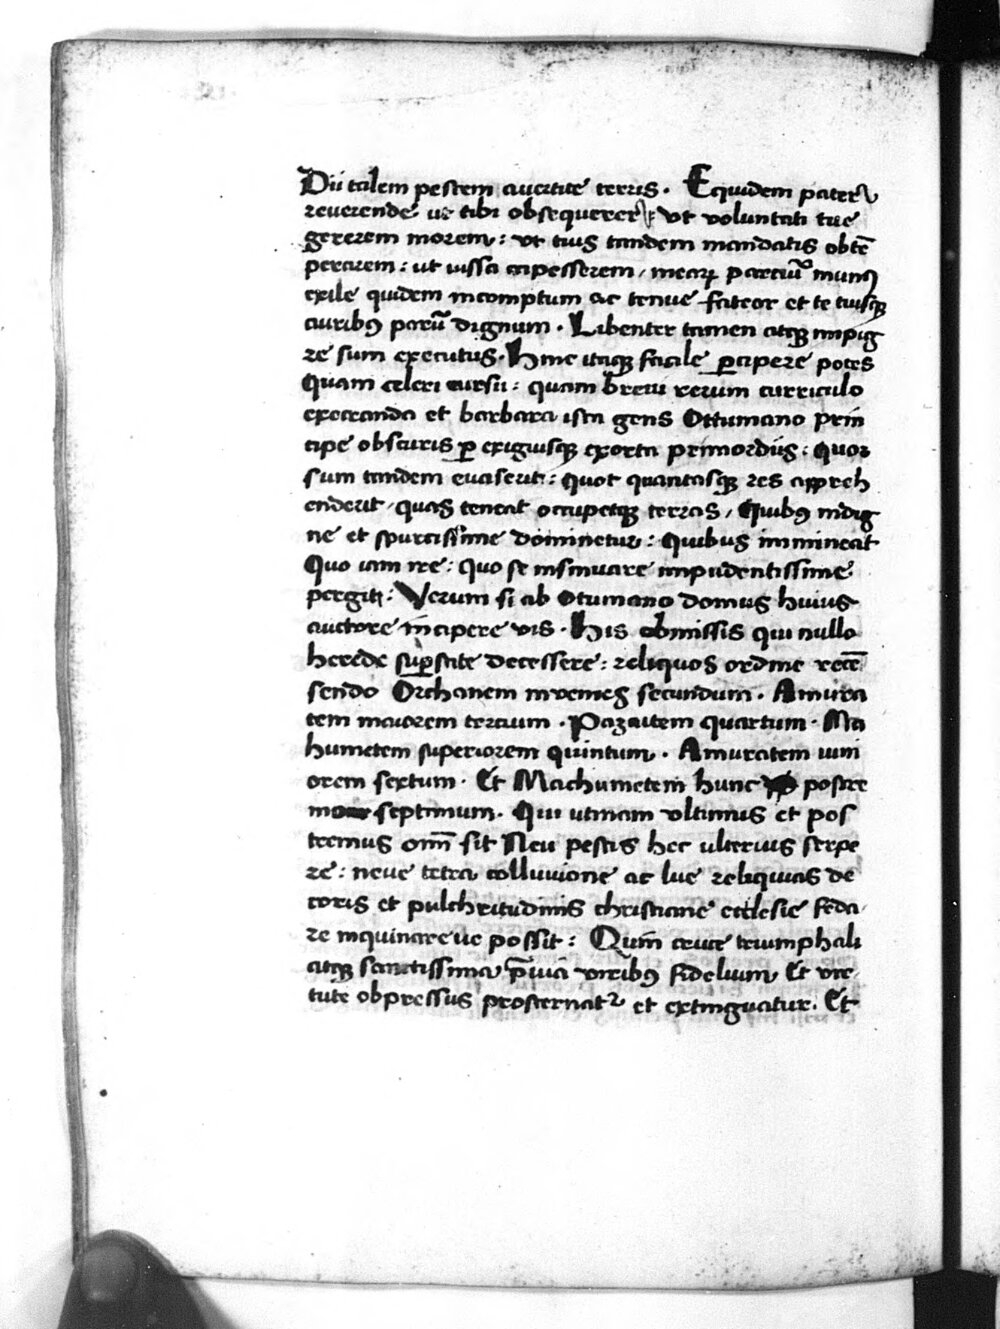 Dii talem pestem auertite terris. Equidem pater
reuerende ut tibi obsequerer ut voluntati tue
gererem morem: vt tuis tandem mandatis obtē
perarem: ut iussa capesserem, mearꝝ partiū munꝯ
exile quidem incomptum ac tenue fateor et te tuisqꝫ
auribꝯ parū dignum. Libenter tamen atqꝫ impig
re sum executus. Hinc itaqꝫ facile ꝑcipere potes
Quam celeri cursu: quam breui rerum curriculo
execranda et barbara ista gens Ottumano prin
cipe obscuris ꝑ exiguisqꝫ exorta primordiis: quor
sum tandem euaserit: quot quantasqꝫ res appreh
enderit, quas teneat occupetqꝫ terras, Quibꝯ indig
ne et spurcissime dominetur: Quibus immineat
Quo iam ire: quo se insinuare impudentissime
pergit: Verum si ab Otumano domus huius
auctore incipere vis. His obmissis qui nullo
herede suꝑstite decessere: reliquos ordine recē
sendo Orchanem inuenies secundum. Amura
tem maiorem tercium. Pazaitem quartum. Ma
humetem superiorem quintum. Amuratem iuni
orem sextum. Et Machumetem hunc postre
mo septimum. Qui utinam vltimus et pos
tremus omī sit Neu pestis hec ulterius serpe
re: neue tetra colluuione ac lue reliquias de
coris et pulchritudinis christiane ecclesie feda,
re inquinareue possit: Quin cruce triumphali
atqꝫ sanctissima p̄uia viribꝯ fidelium Et vir,
tute obpressus prosternatr et extinguatur. Et